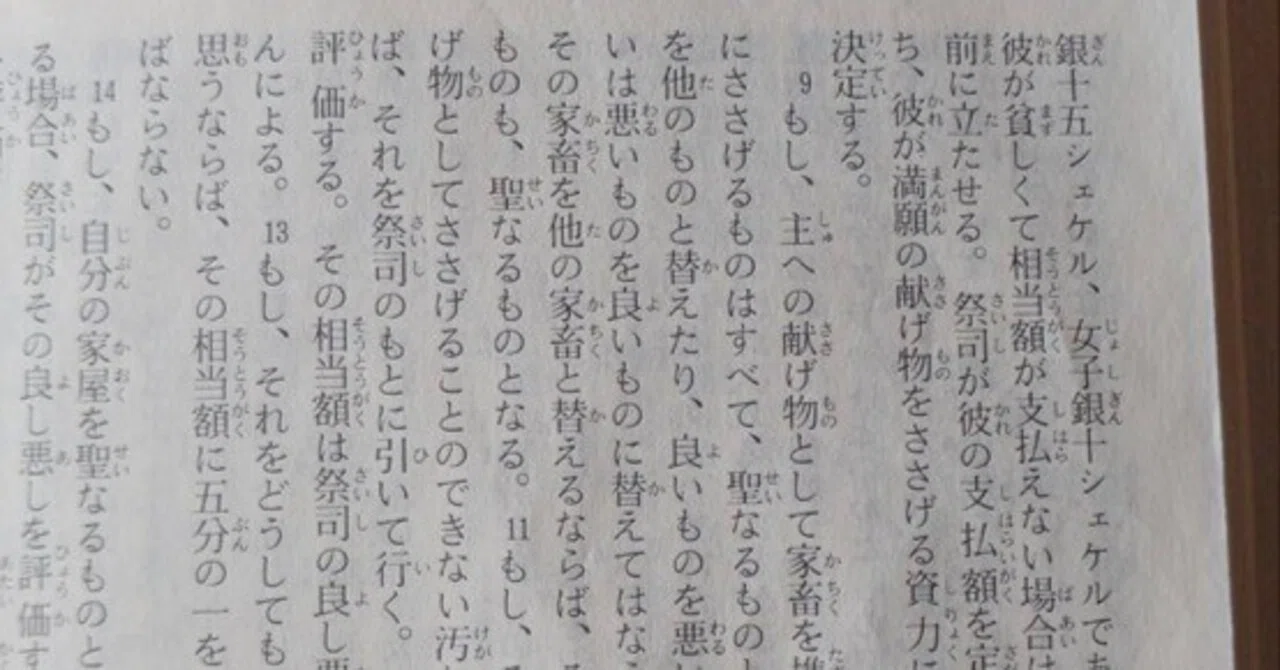 銀十五シェケル、女子銀十シェケルで
彼が貧しくて相当額が支払えない場合は
前に立たせる。祭司が彼の支払額を定
ち、彼が満願の献げ物をささげる資力に
決定する。
9もし、主への献げ物として家畜を
にささげるものはすべて、聖なるもの
を他のものと替えたり、良いものを悪い
いは悪いものを良いものに替えてはな
その家畜を他の家畜と替えるならば、
ものも、聖なるものとなる。11もし、
げ物としてささげることのできない汚
ば、それを祭司のもとに引いて行く。
評価する。その相当額は祭司の良し
んによる。13もし、それをどうしても
思うならば、その相当額に五分の一を
ばならない。
14もし、自分の家屋を聖なるものと
る場合、祭司がその良し悪しを評価す